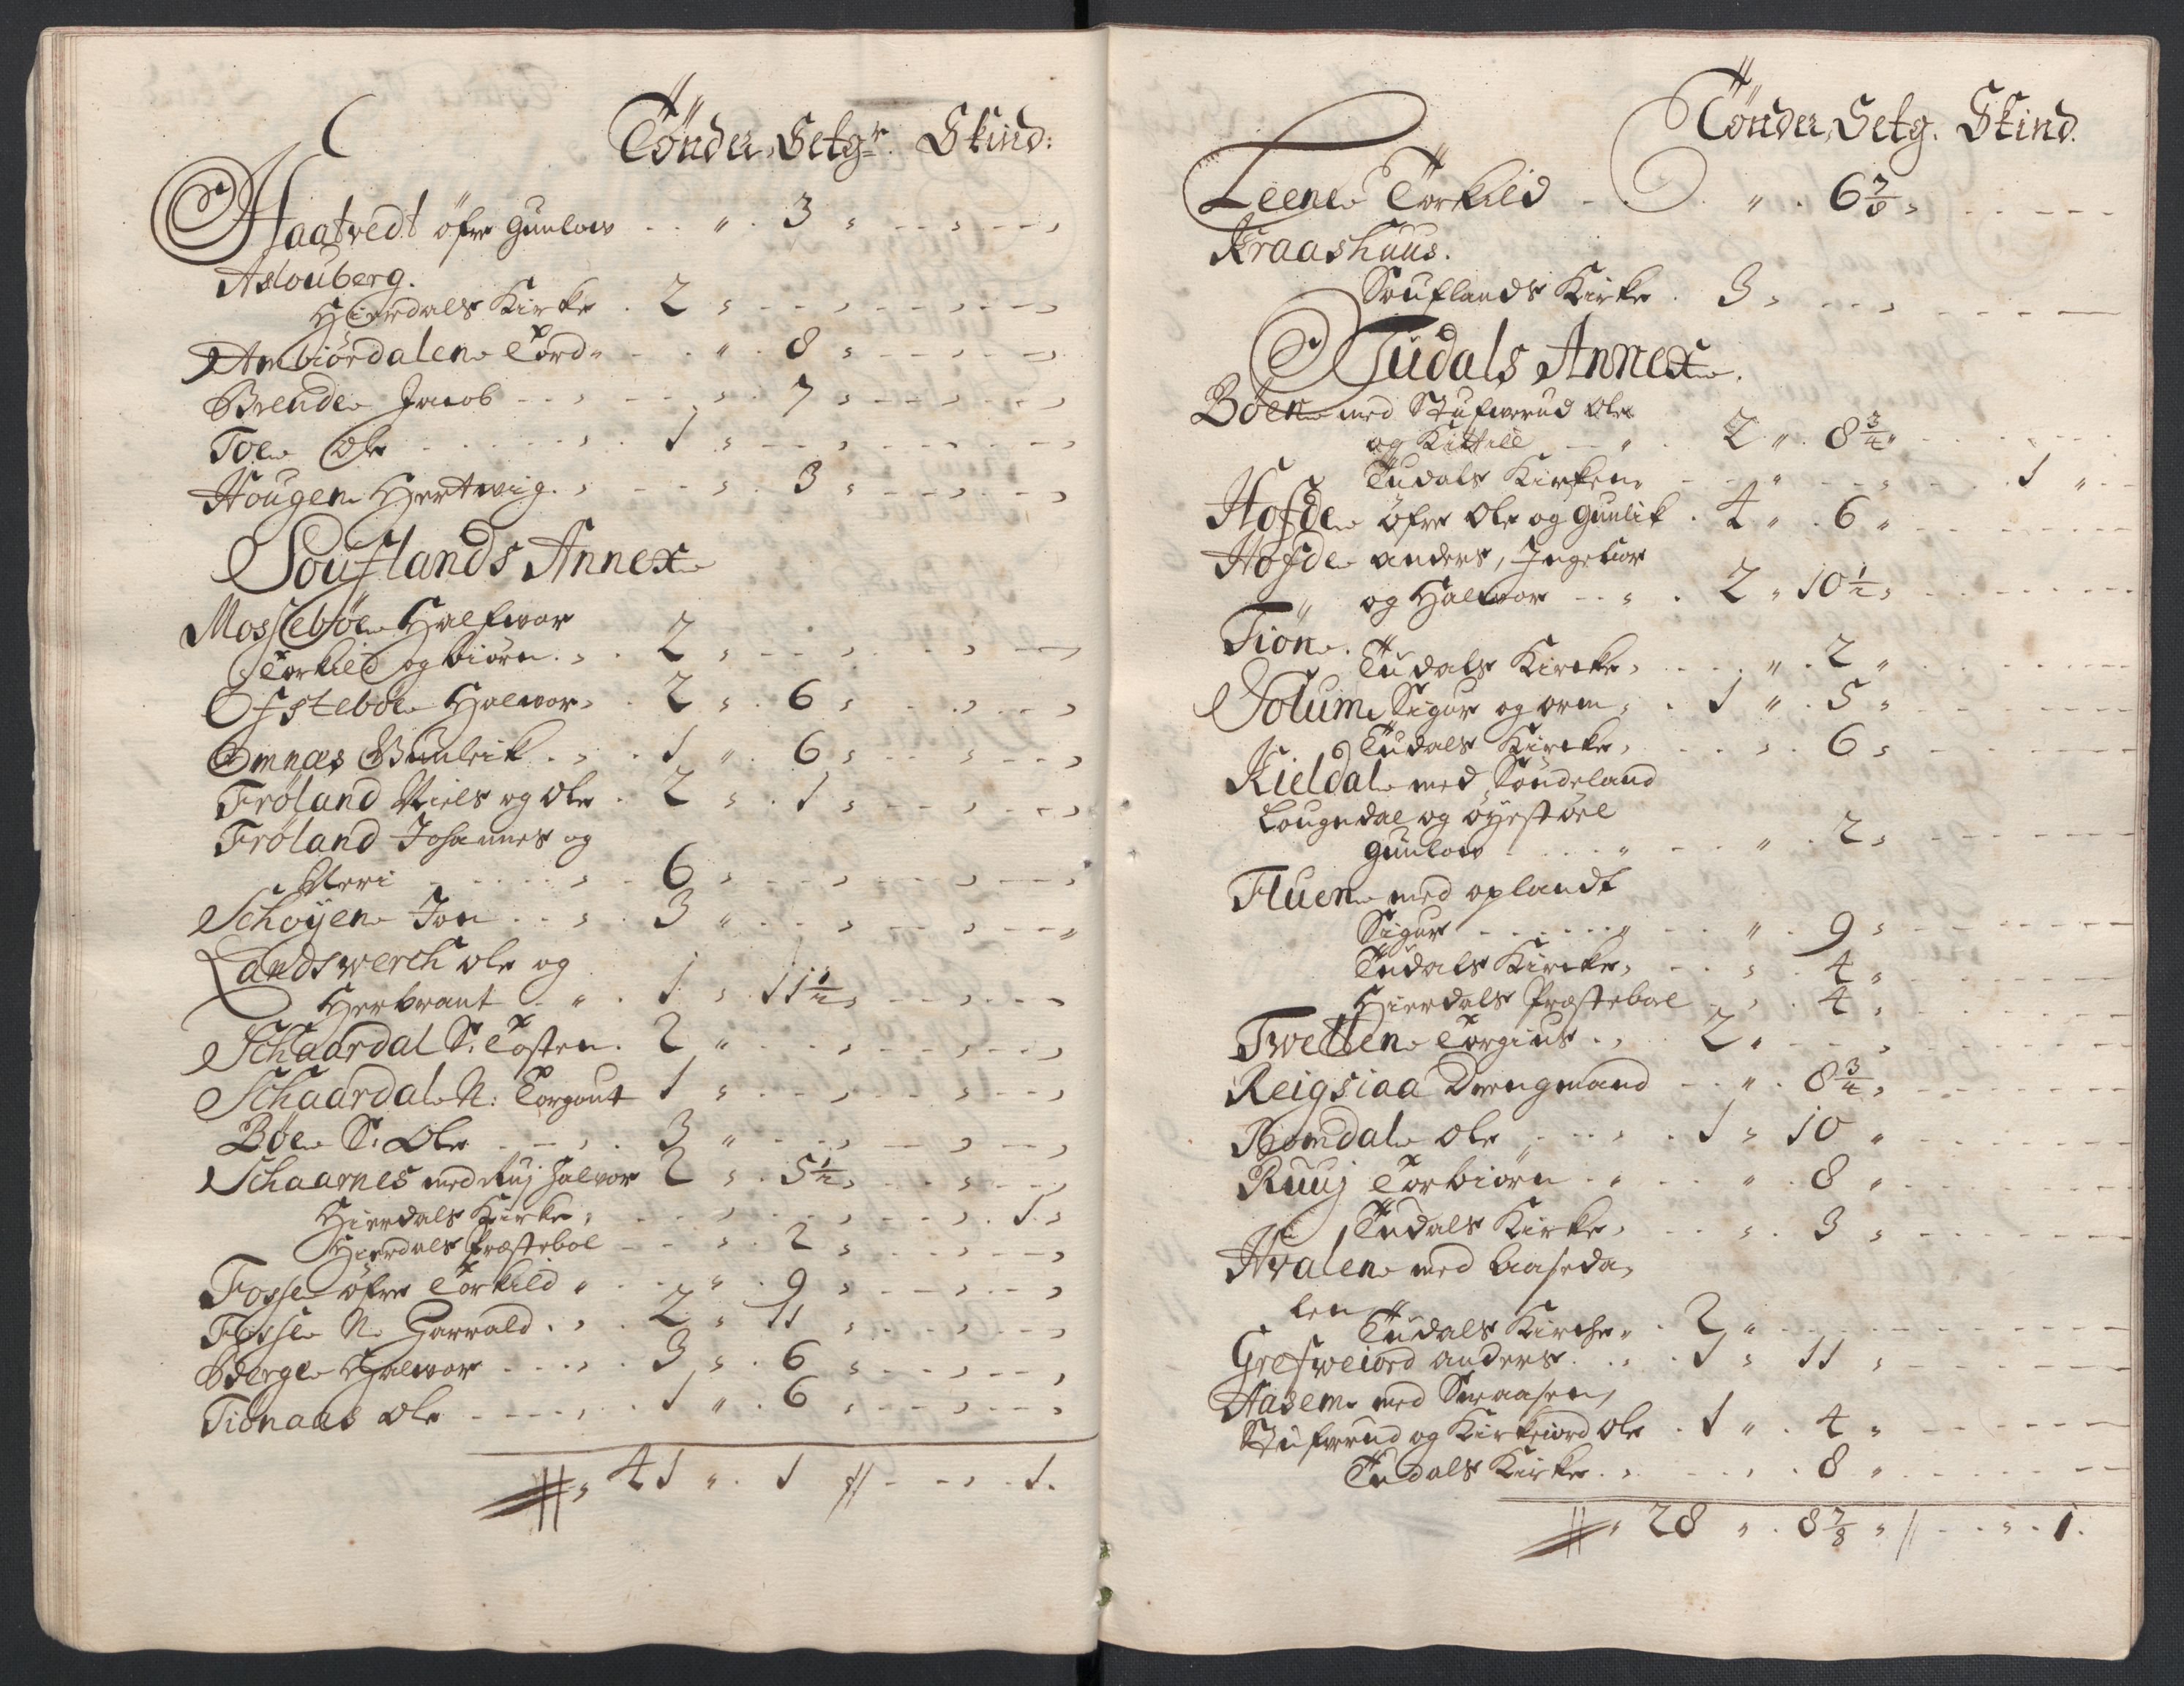 Tönder, Setgr. Skind:
Haatvedt öfre Gunlow .. " . 3 "
Aslouberg.
Hierdals Kirke . 2 "
Ambiördalen Tord " . 8 "
Brende Jacob - - " . 7 "
Toe Ole . 1 "
Hougen Hertwig. " . 3 "
Souflands Annex
Mosseböe Halfwor
Torkild og biörn . 2 "
Ofsteböe Halwor . 2 " . 6 "
Omnæs Gunleik . 1 " . 6 "
Fröland Niels og Ole . 2 " . 1 "
Fröland Johannes og
Neri . 6 "
Schöyen Jon . 3 "
Landswerch Ole og
Herbrant . 1 " 11½ "
Schaardal S. Tosten . 2 "
Schaardal N: Torgout 1 "
Böe S: Ole . 3 "
Schaarnes med Ruj Halvor 2 " . 5½ "
Hierdals Kirke " . 1 "
Hierdals Præstebol " . 2 "
Fosse öfre Torkild " . " . 9 "
Fosse N. Garvald . 2 " 11 "
Berge Halwor . 3 " . 6 "
Tiönaas Ole . 1 " . 6 "
" 41 " . 1 // - - " . 1.
Tönder, Setg. Skind.
Leene Torkild - . " . 6⅞ "
Kraashuus.
Souflands Kirke . 3 "
Tudals Annex.
Böen med Stufwerud Ole
og Kittill . 2 " . 8¾ "
Tudals Kirken " . 1 "
Hofde öfre Ole og Gunlik . 4 " . 6 "
Hofde anders, Ingebor
og Halwor . 2 " 10½ "
Tiön.
Tudals Kircke " . 2 "
Solum Sigur og orm . 1 " . 5 "
Tudals Kircke " . 6 "
Kieldal med Sönderland
Lougedal og öyestöel
Gunlow " . 2 "
Fluen med oplandt
Sigur " . 9 "
Tudals Kircke " . 4 "
Hierdals Præstebol . 4 "
Twetten Torgius . 2 "
Reigsiaa Drengmand " . 8¾ "
Bomdal Ole . 1 " 10 "
Ruuj Torbiörn " . 8 "
Tudals Kirke " . 3 "
Hvalen med Aaseda,
len
Tudals Kirche . 2 "
Grefweiord anders . 1 " 11 "
Aasem med Smaasen,
Stufwrud og Kirkeiord Ole . 1 " . 4 "
Tudals Kirke . 8 "
" 28 " . 8⅞ " // - - " . 1.